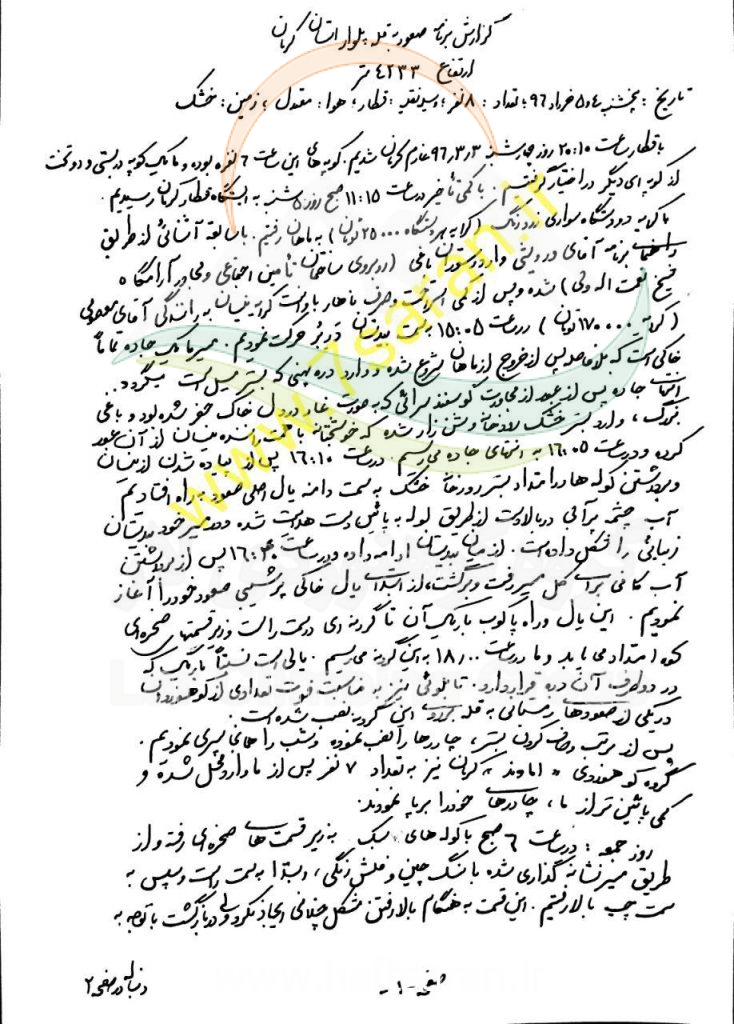 گزارش برنامه صعود به قله پلوار استان کرمان
ارتفاع ۴۲۳۳ متر
تاریخ: پنجشنبه ۴ و ۵ خرداد ۹۶؛ تعداد: ۸ نفر؛ وسیله نقلیه: قطار؛ هوا: معتدل؛ زمین: خشک
با قطار ساعت ۲۰:۱۰ روز چهارشنبه ۹۶٫۳٫۳ عازم کرمان شدیم. کوپه های این ساعت ۶ نفره بوده و ما یک کوپه دربستی و دو تخت
از کوپه ای دیگر در اختیار گرفتیم. با کمی تأخیر در ساعت ۱۱:۱۵ صبح روز ۵ شنبه به ایستگاه قطار کرمان رسیدیم.
با کرایه دو دستگاه سواری زرد رنگ (کرایه هر دستگاه ۲۵۰۰۰ تومان) به ماهان رفتیم. با سابقه آشنائی از طریق
راهنمای برنامه آقای درویشی وارد رستوران باغی (روبروی ساختمان تأمین اجتماعی و مجاور آرامگاه
شیخ نعمت اله ولی) شده و پس از کمی استراحت و صرف ناهار با وانت کرایه نیسان به رانندگی آقای
(کرایه ۱۷۰۰۰۰ تومان) در ساعت ۱۵:۰۵ به سمت بیدستان حرکت نمودیم. مسیر ما یک جاده تماماً
خاکی است که بلافاصله پس از خروج از ماهان شروع شده و وارد دره پهنی که بستر مسیل است میگردد.
انتهای جاده پس از عبور از مجاورت گوسفند سرائی که به صورت غار در دل خاک حفر شده بود و باغی
بزرگ، وارد بستر خشک رودخانه و شن زار شده که خوشبختانه با همت راننده نیسان از آن عبور
کرده و در ساعت ۱۶:۰۵ به انتهای جاده می رسیم. در ساعت ۱۶:۱۰ پس از پیاده شدن از نیسان
و برداشتن کوله ها در امتداد بستر رودخانه خشک به سمت دامنه یال اصلی صعود به راه افتادیم
آب چشمه پرآبی در بالادست از طریق لوله به پائین دست هدایت شده و در مسیر خود بیدستان
زیبائی را شکل داده است. از میان بیدستان ادامه داده و در ساعت ۱۶:۴۰ پس از برداشتن
آب کافی برای کل مسیر رفت و برگشت، از ابتدای یال خاکی پرشیبی صعود خود را آغاز
نمودیم. این یال و راه پاکوب باریک آن تا گردنه ای در سمت راست و زیر قسمتهای صخره ای
کوه امتداد می یابد و ما در ساعت ۱۸٫۰۰ به این گردنه می رسیم. یالی است نسبتاً باریک که
در دو طرف آن دره قرار دارد. تابلوئی نیز به مناسبت فوت تعدادی از کوهنوردان
در یکی از صعودهای زمستانی به قله بر روی این گردنه نصب شده است.
پس از مرتب و صاف کردن بستر، چادرها را نصب نموده و شب را همانجا سپری نمودیم.
گروه کوهنوردی «اماوند» کرمان نیز به تعداد ۷ نفر پس از ما وارد محل شده و
کمی پائین تر از ما، چادرهای خود را برپا نمودند.
روز جمعه: در ساعت ۶ صبح با کوله های سبک به زیر قسمت های صخره ای رفته و از
طریق مسیر نشانه گذاری شده با سنگ چین و فلش رنگی، ابتدا به سمت راست و سپس به
سمت چپ بالا رفتیم. این قسمت به هنگام بالا رفتن مشکل چندانی ایجاد نکرد ولی در بازگشت با توجه به
صفحه -۱-
دنباله در صفحه ۲
www.7saran.ir
www.haftsaran.ir